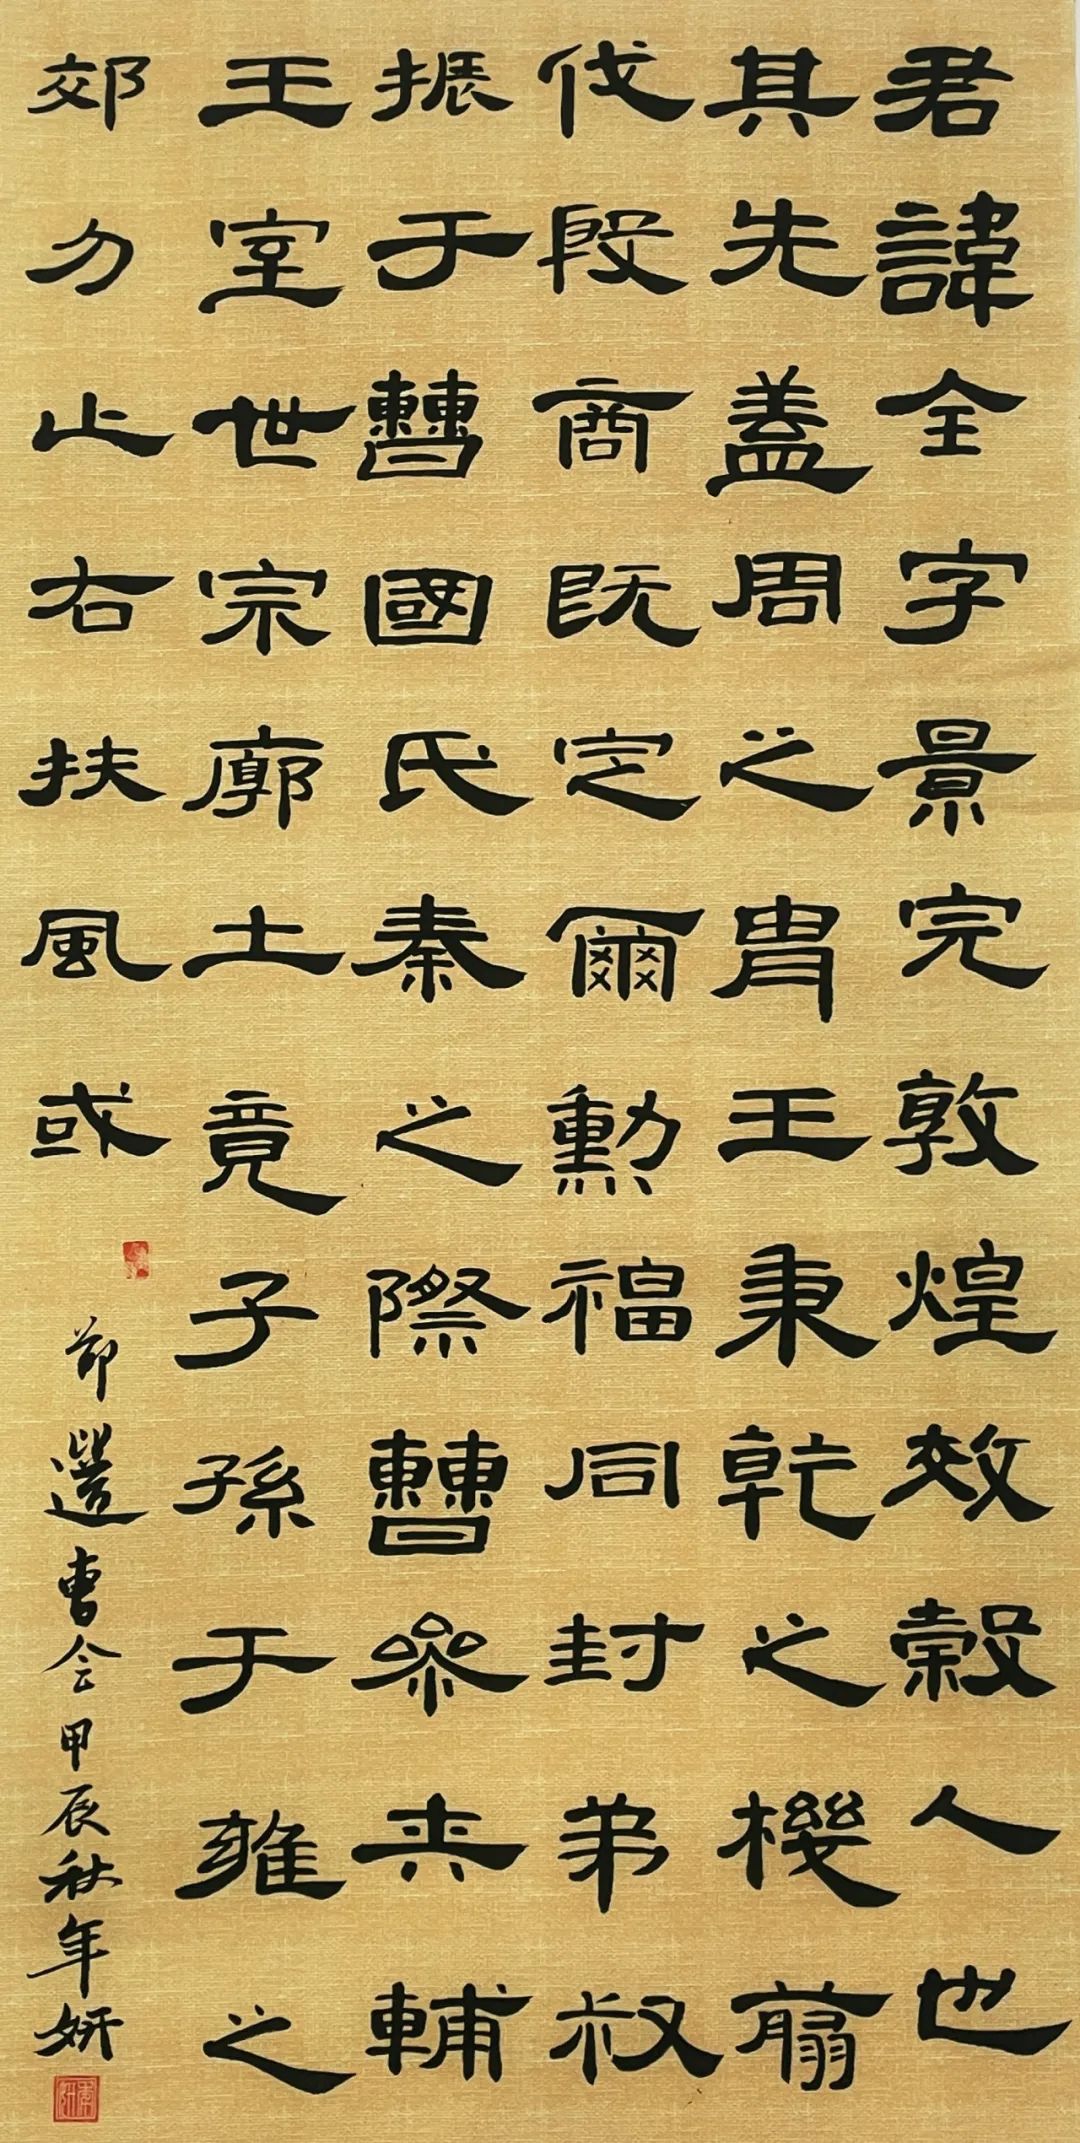 君諱全字景完敦煌效穀人也
其先盖周之胄王秉乾之機翦
伐殷商既定爾勳福同封弟叔
振于曹國氏秦之際曹參夾輔
王室世宗廓土竟子孫于雍之
郊分止右扶風或
節選曹全甲辰秋年妍